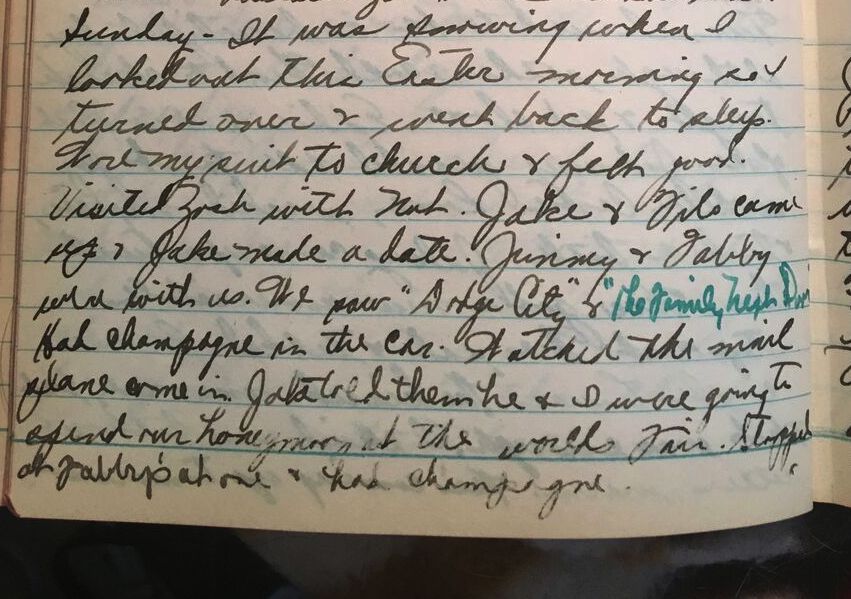 Sunday - It was snowing when I
looked out this Easter morning so I
turned over & went back to sleep.
Wore my suit to church & felt good.
Visited with Nat. Jake & Filo came
up & Jake made a date. Jimmy & Tabby
were with us. We saw "Dodge City" & "The Family Next Door
Had champagne in the car. Watched the mail
plane come in. Jake told them he & I were going to
spend our honeymoon at the world's Fair. Stopped
at Tabby's at one & had champagne.